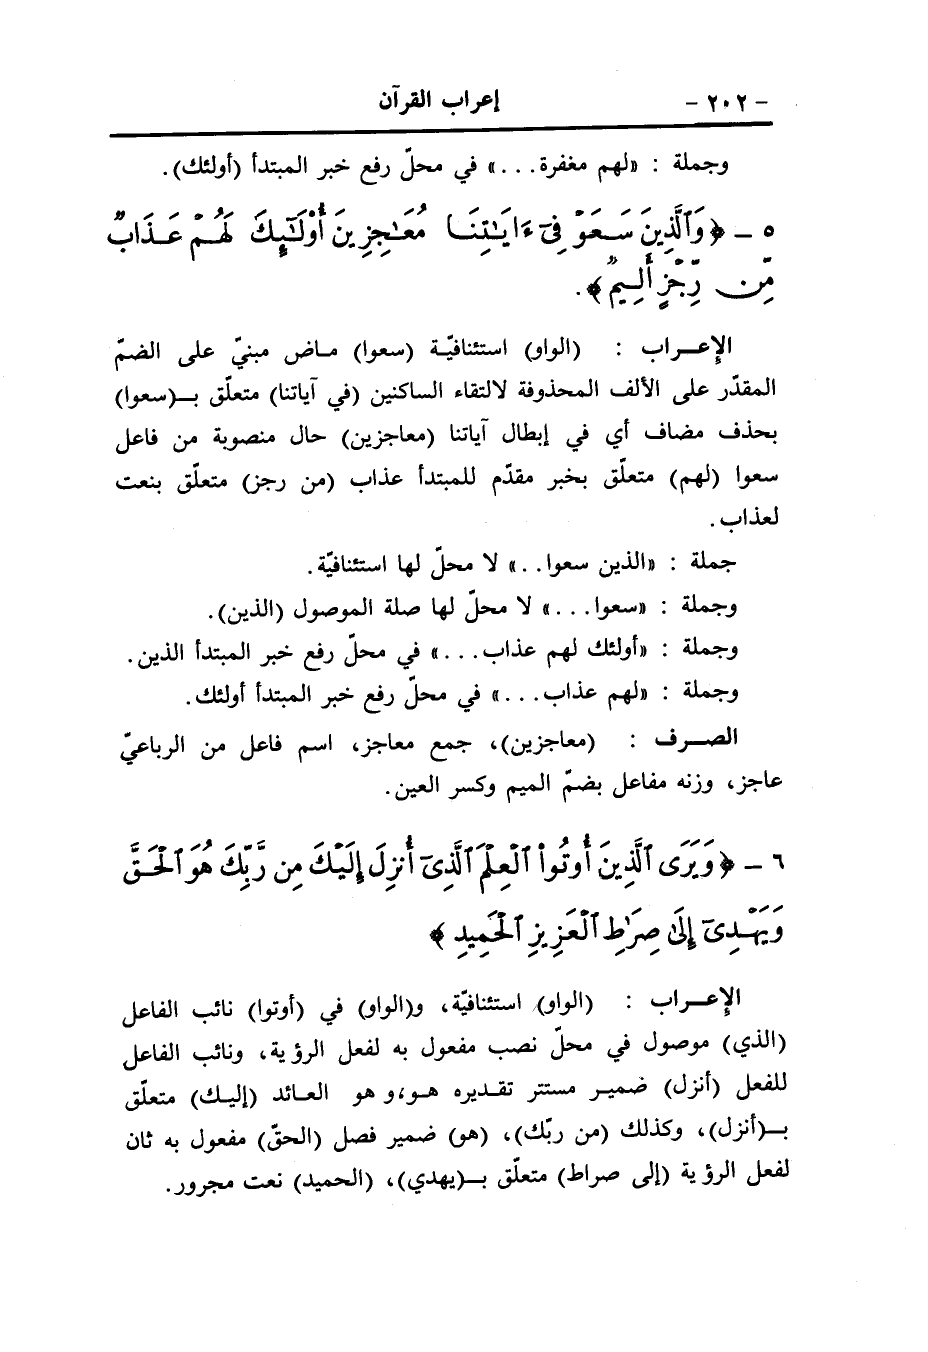 - ٢٠٢ - إعراب القرآن
وجملة : «لهم مغفرة. . .» في محلّ رفع خبر المبتدأ (أولئك).
٥ - ﴿وَٱلَّذِينَ سَعَوْ فِىٓ ءَايَٰتِنَا مُعَٰجِزِينَ أُوْلَٰٓئِكَ لَهُمْ عَذَابٌ
مِّن رِّجْزٍ أَلِيمٌ﴾.
الإعـراب : (الواو) استئنافيّة (سعوا) ماض مبنيّ على الضمّ
المقدّر على الألف المحذوفة لالتقاء الساكنين (في آياتنا) متعلّق بـ(سعوا)
بحذف مضاف أي في إبطال آياتنا (معاجزين) حال منصوبة من فاعل
سعوا (لهم) متعلّق بخبر مقدّم للمبتدأ عذاب (من رجز) متعلّق بنعت
لعذاب.
جملة : «الذين سعوا. .» لا محلّ لها استئنافيّة.
وجملة : «سعوا. . .» لا محلّ لها صلة الموصول (الذين).
وجملة : «أولئك لهم عذاب. . .» في محلّ رفع خبر المبتدأ الذين.
وجملة : «لهم عذاب. . .» في محلّ رفع خبر المبتدأ أولئك.
الصـرف : (معاجزين)، جمع معاجز، اسم فاعل من الرباعيّ
عاجز، وزنه مفاعل بضمّ الميم وكسر العين.
٦ - ﴿وَيَرَى ٱلَّذِينَ أُوتُواْ ٱلْعِلْمَ ٱلَّذِىٓ أُنزِلَ إِلَيْكَ مِن رَّبِّكَ هُوَ ٱلْحَقَّ
وَيَهْدِىٓ إِلَىٰ صِرَٰطِ ٱلْعَزِيزِ ٱلْحَمِيدِ﴾
الإعـراب : (الواو) استئنافيّة، و(الواو) في (أوتوا) نائب الفاعل
(الذي) موصول في محلّ نصب مفعول به لفعل الرؤية، ونائب الفاعل
للفعل (أنزل) ضمير مستتر تقديره هو، وهو العائد (إليك) متعلّق
بـ(أنزل)، وكذلك (من ربّك)، (هو) ضمير فصل (الحقّ) مفعول به ثان
لفعل الرؤية (إلى صراط) متعلّق بـ(يهدي)، (الحميد) نعت مجرور.